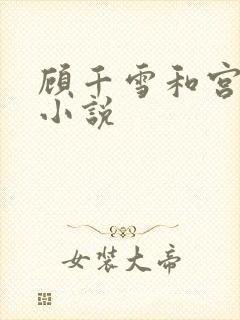 顾千雪和宫
小说
女装大帝